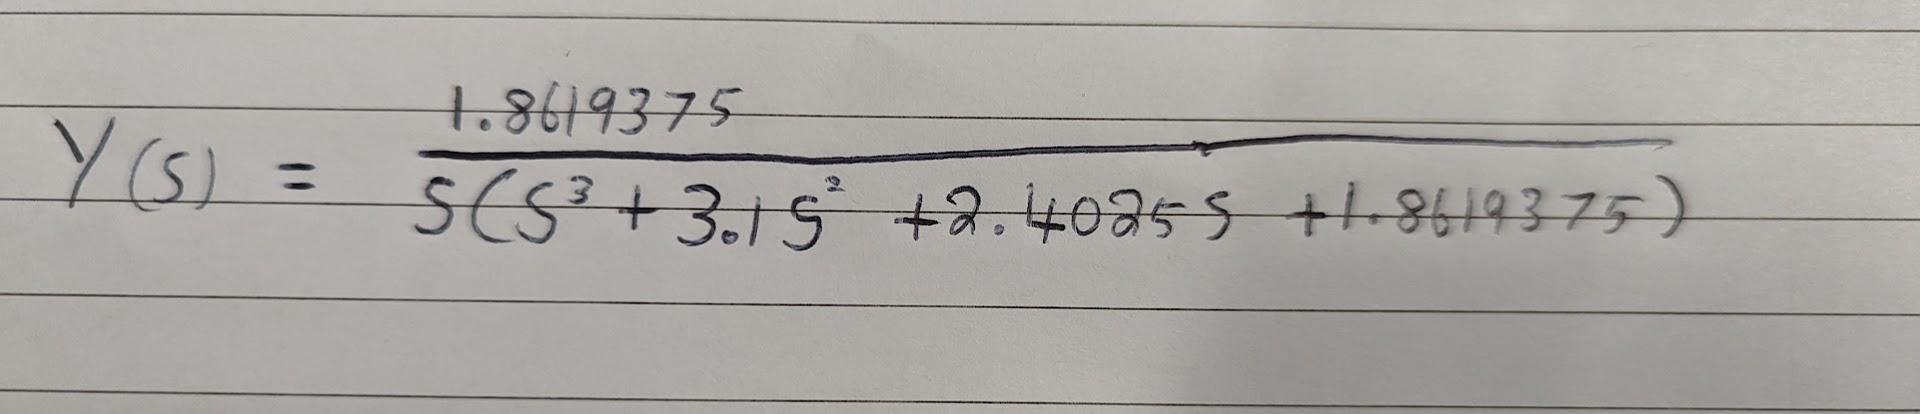 Y(s) = 1.8619375 / s(s³ + 3.1s² + 2.4025s + 1.8619375)